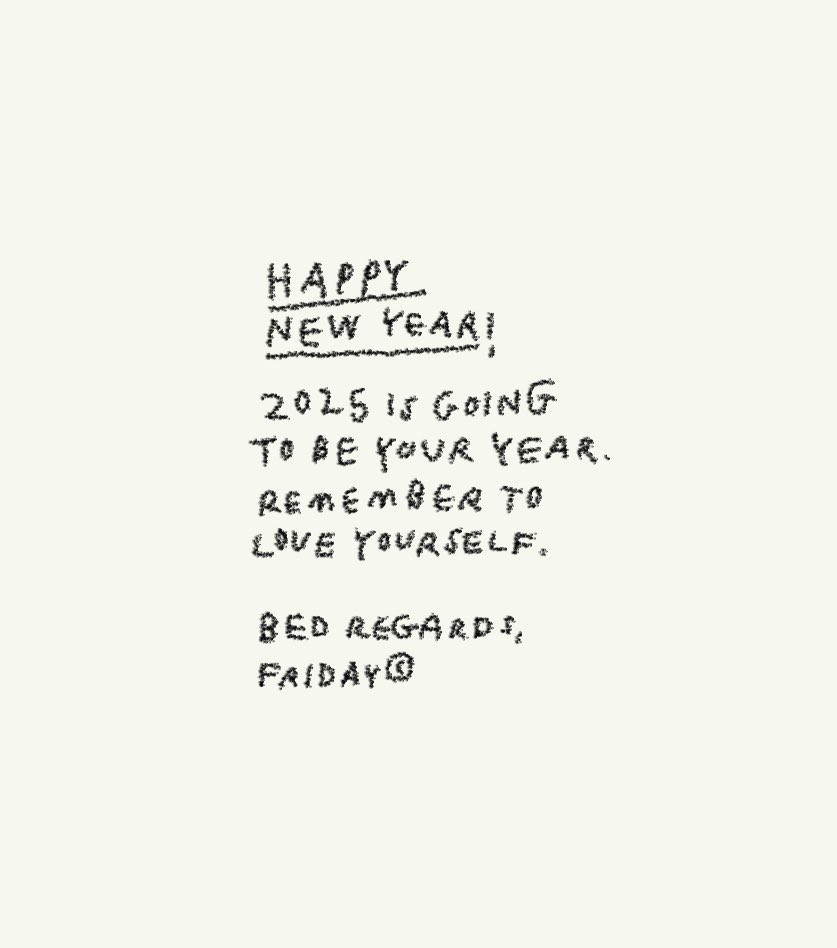 HAPPY
NEW YEAR!
2025 IS GOING
TO BE YOUR YEAR.
REMEMBER TO
LOVE YOURSELF.
BED REGARDS,
FRIDAY©